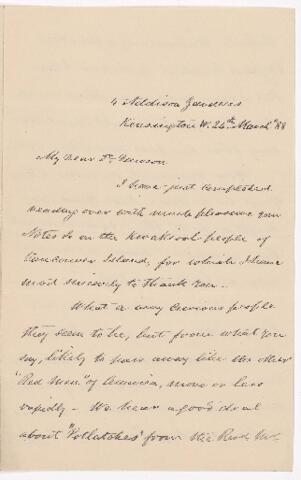 4 Addison Gardens
Kensington W. 24th March '88
My dear Dr. Dawson
I have just completed
reading over with much pleasure your
Notes &c on the Kwakiool people of
Vancouver Island, for which I have
most sincerely to thank you.
What a very curious people
they seem to be, but from what you
say, likely to pass away like the other
"Red Men" of America, more or less
rapidly - We hear a good deal
about "Potlatches" from the Revd. Mr.